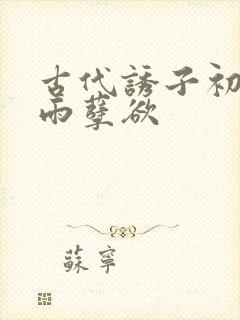 古代誘子初
雨孽欲
蘇寧